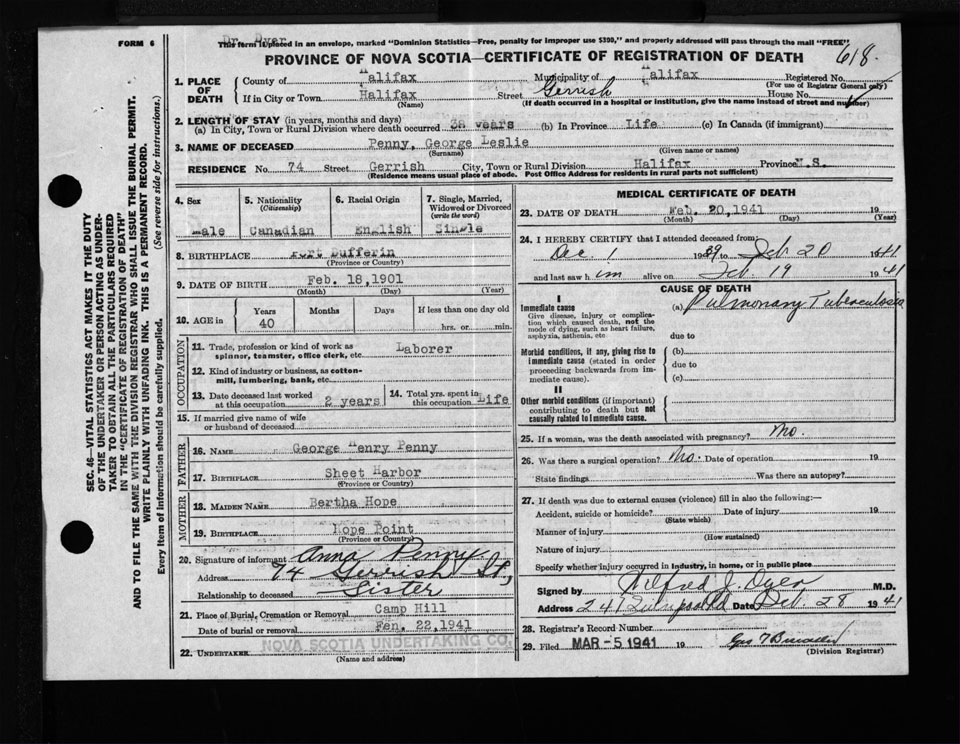 FORM 6
Dr. Dyer
This form if placed in an envelope, marked "Dominion Statistics—Free, penalty for improper use $300," and properly addressed will pass through the mail "FREE"
PROVINCE OF NOVA SCOTIA—CERTIFICATE OF REGISTRATION OF DEATH
618.
1. PLACE OF DEATH
County of Halifax Municipality of Halifax Registered No.
(For use of Registrar General only)
If in City or Town Halifax Street Gerrish House No.
(Name) (If death occurred in a hospital or institution, give the name instead of street and number)
2. LENGTH OF STAY (in years, months and days)
(a) In City, Town or Rural Division where death occurred 38 years (b) In Province Life (c) In Canada (if immigrant)
3. NAME OF DECEASED Penny, George Leslie
(Surname) (Given name or names)
RESIDENCE No. 74 Street Gerrish City, Town or Rural Division Halifax Province N.S.
(Residence means usual place of abode. Post Office Address for residents in rural parts not sufficient)
4. Sex
Male
5. Nationality
(Citizenship)
Canadian
6. Racial Origin
English
7. Single, Married, Widowed or Divorced
(write the word)
Single
8. BIRTHPLACE Port Dufferin
(Province or Country)
9. DATE OF BIRTH Feb. 18,1901
(Month) (Day) (Year)
10. AGE in Years Months Days If less than one day old
40 hrs. or min.
OCCUPATION
11. Trade, profession or kind of work as Laborer
spinner, teamster, office clerk, etc.
12. Kind of industry or business, as cotton-
mill, lumbering, bank, etc.
13. Date deceased last worked
at this occupation 2 years
14. Total yrs. spent in
this occupation Life
15. If married give name of wife
or husband of deceased
FATHER
16. NAME George Henry Penny
17. BIRTHPLACE Sheet Harbor
(Province or Country)
MOTHER
18. MAIDEN NAME Bertha Hope
19. BIRTHPLACE Hope Point
(Province or Country)
20. Signature of informant Anna Penny
Address 74 Gerrish St,
Relationship to deceased Sister
21. Place of Burial, Cremation or Removal Camp Hill
Date of burial or removal Fen. 22,1941
22. UNDERTAKER NOVA SCOTIA UNDERTAKING CO.
(Name and address)
MEDICAL CERTIFICATE OF DEATH
23. DATE OF DEATH Feb. 20,1941 19
(Month) (Day) (Year)
24. I HEREBY CERTIFY that I attended deceased from:
Dec. 1 1939 to Feb. 20 1941
and last saw him alive on Feb. 19 1941
CAUSE OF DEATH
I
Immediate cause
Give disease, injury or complica-
tion which caused death, not the
mode of dying, such as heart failure,
asphyxia, asthenia, etc
(a) Pulmonary Tuberculosis
due to
Morbid conditions, if any, giving rise to
immediate cause (stated in order
proceeding backwards from im-
mediate cause).
(b)
due to
(c)
II
Other morbid conditions (if important)
contributing to death but not
causally related to immediate cause.
25. If a woman, was the death associated with pregnancy? No.
26. Was there a surgical operation? No. Date of operation 19
State findings Was there an autopsy?
27. If death was due to external causes (violence) fill in also the following:—
Accident, suicide or homicide? Date of injury 19
(State which)
Manner of injury
(How sustained)
Nature of injury
Specify whether injury occurred in industry, in home, or in public place
Signed by Wilfred J. Dyer M.D.
Address 241 Date Feb. 28 1941
28. Registrar's Record Number
29. Filed MAR - 5 1941 19
(Division Registrar)
SEC. 46—VITAL STATISTICS ACT MAKES IT THE DUTY
OF THE UNDERTAKER OR PERSON ACTING AS UNDER-
TAKER TO OBTAIN ALL THE PARTICULARS REQUIRED
IN THE "CERTIFICATE OF REGISTRATION OF DEATH"
AND TO FILE THE SAME WITH THE DIVISION REGISTRAR WHO SHALL ISSUE THE BURIAL PERMIT.
WRITE PLAINLY WITH UNFADING INK. THIS IS A PERMANENT RECORD.
Every item of information should be carefully supplied. (See reverse side for instructions.)